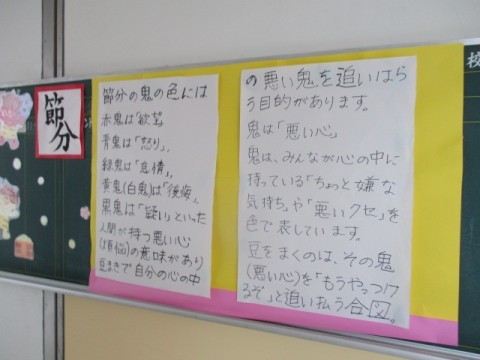 節分
節分の鬼の色には
赤鬼は「欲望」、
青鬼は「怒り」、
緑鬼は「怠情」、
黄鬼(白鬼)は「後悔」、
黒鬼は「疑い」といった
人間が持つ悪い心
(煩悩)の意味があり
豆まきで自分の心の中
の悪い鬼を追いはら
う目的があります。
鬼は「悪い心」
鬼は、みんなが心の中に
持っている「ちょっと嫌な
気持ち」や「悪いクセ」を
色で表しています。
豆をまくのは、その鬼
(悪い心)を「もうやっつけ
るぞ」と追い払う合図。
校